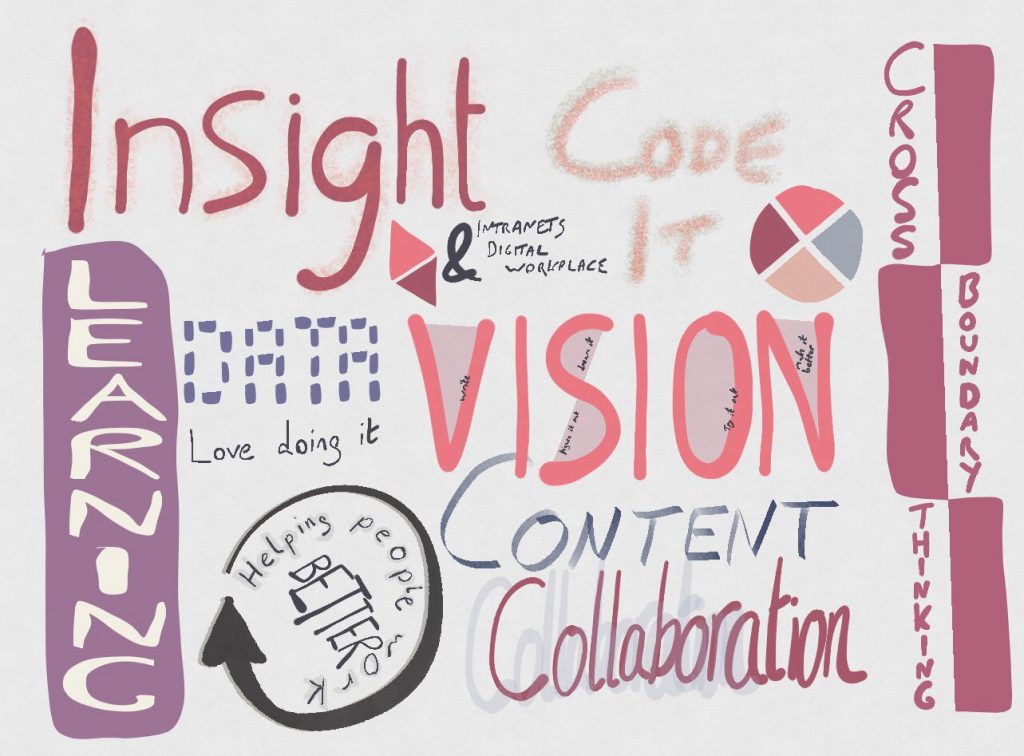 Insight
CODE
IT
CROSS
BOUNDARY
THINKING
& INTRANETS
DIGITAL
WORKPLACE
LEARNING
DATA
Love doing it
VISION
write
Argue it out
draw it
Try it out
Make it
better
CONTENT
Helping people work
BETTER
Collaboration